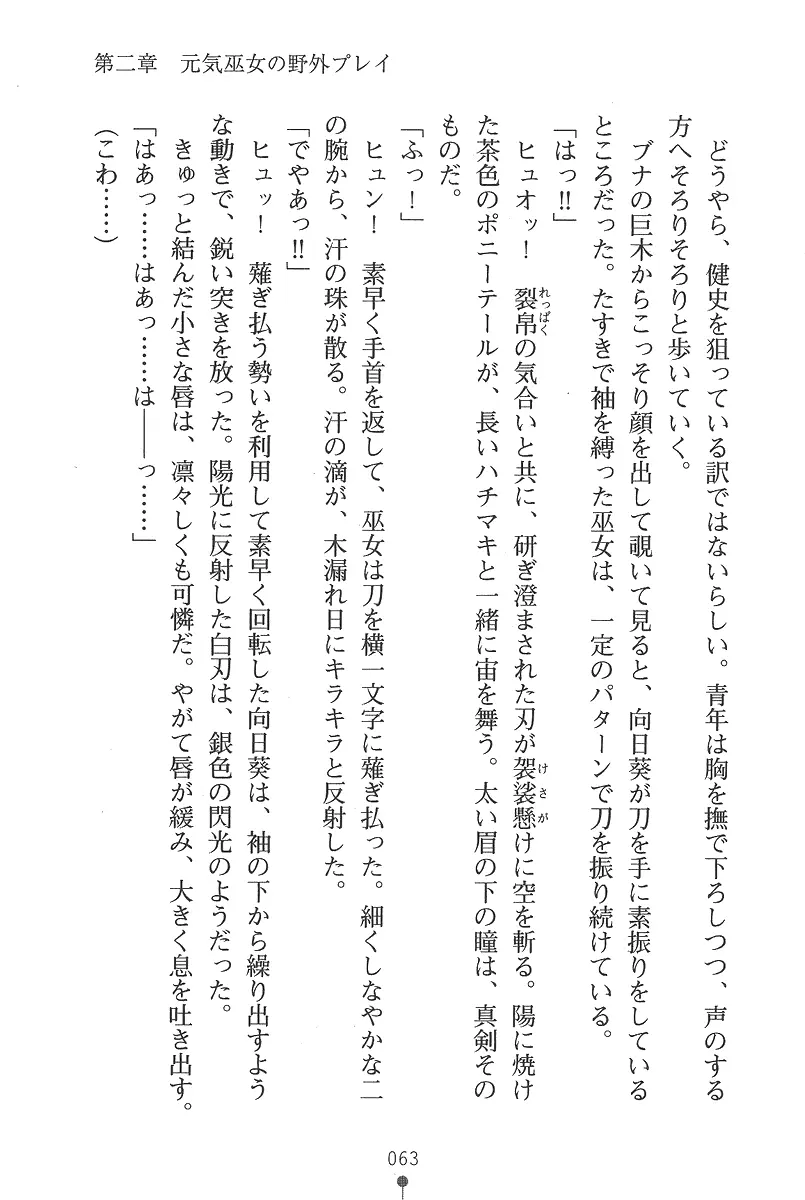 第二章　元気巫女の野外プレイ
どうやら、健史を狙っている訳ではないらしい。青年は胸を撫で下ろしつつ、声のする
方へそろりそろりと歩いていく。
ブナの巨木からこっそり顔を出して覗いて見ると、向日葵が刀を手に素振りをしている
ところだった。たすきで袖を縛った巫女は、一定のパターンで刀を振り続けている。
「はっ!!」
ヒュオッ！　裂帛の気合いと共に、研ぎ澄まされた刃が袈裟懸けに空を斬る。陽に焼け
た茶色のポニーテールが、長いハチマキと一緒に宙を舞う。太い眉の下の瞳は、真剣その
ものだ。
「ふっ！」
ヒュン！　素早く手首を返して、巫女は刀を横一文字に薙ぎ払った。細くしなやかな二
の腕から、汗の珠が散る。汗の滴が、木漏れ日にキラキラと反射した。
「でやあっ!!」
ヒュッ！　薙ぎ払う勢いを利用して素早く回転した向日葵は、袖の下から繰り出すよう
な動きで、鋭い突きを放った。陽光に反射した白刃は、銀色の閃光のようだった。
きゅっと結んだ小さな唇は、凛々しくも可憐だ。やがて唇が緩み、大きく息を吐き出す。
「はあっ……はあっ……は――っ……」
（こわ……）
063